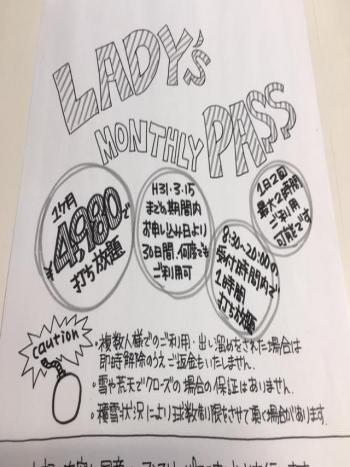 LADY's
MONTHLY PASS
1ヶ月
¥4,980で
打ち放題
H31.3.15
までの期間内
お申し込み日より
30日間、何度でも
ご利用可
8:30~20:00の
受付時間内で
1時間
打ち放題
1日2回
最大2時間
ご利用
可能です
caution
・複数人様でのご利用・出し溜めをされた場合は
即時解除のうえご返金もいたしません。
・雪や荒天でクローズの場合の保証はありません。
・積雪状況により球数制限をさせて頂く場合があります。